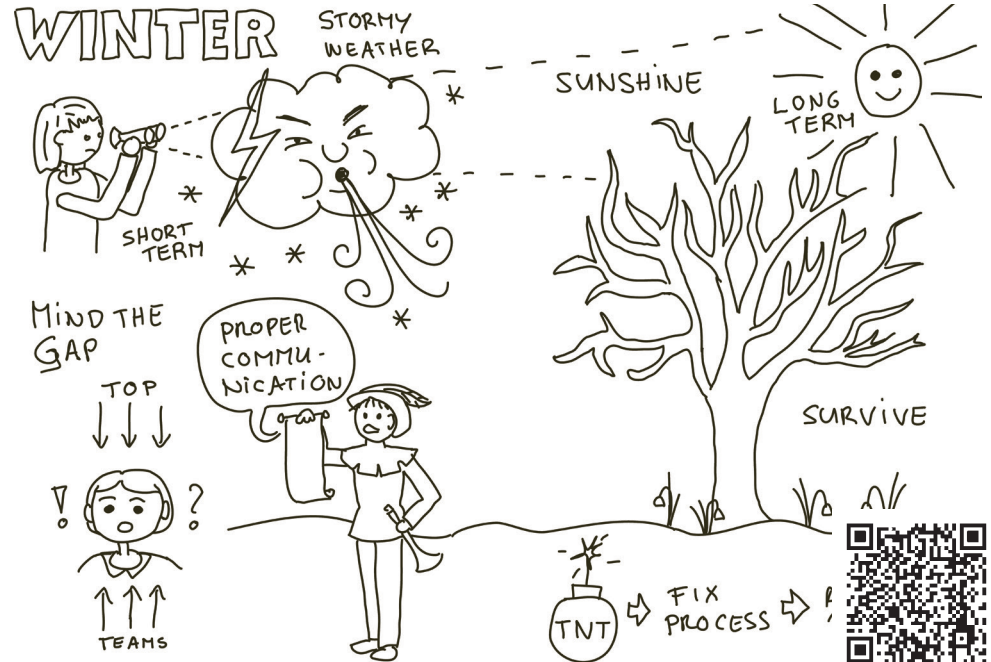 WINTER
STORMY
WEATHER
SUNSHINE
LONG
TERM
SHORT
TERM
MIND THE
GAP
PROPER
COMMU-
NICATION
TOP
!
?
TEAMS
SURVIVE
TNT
FIX
PROCESS